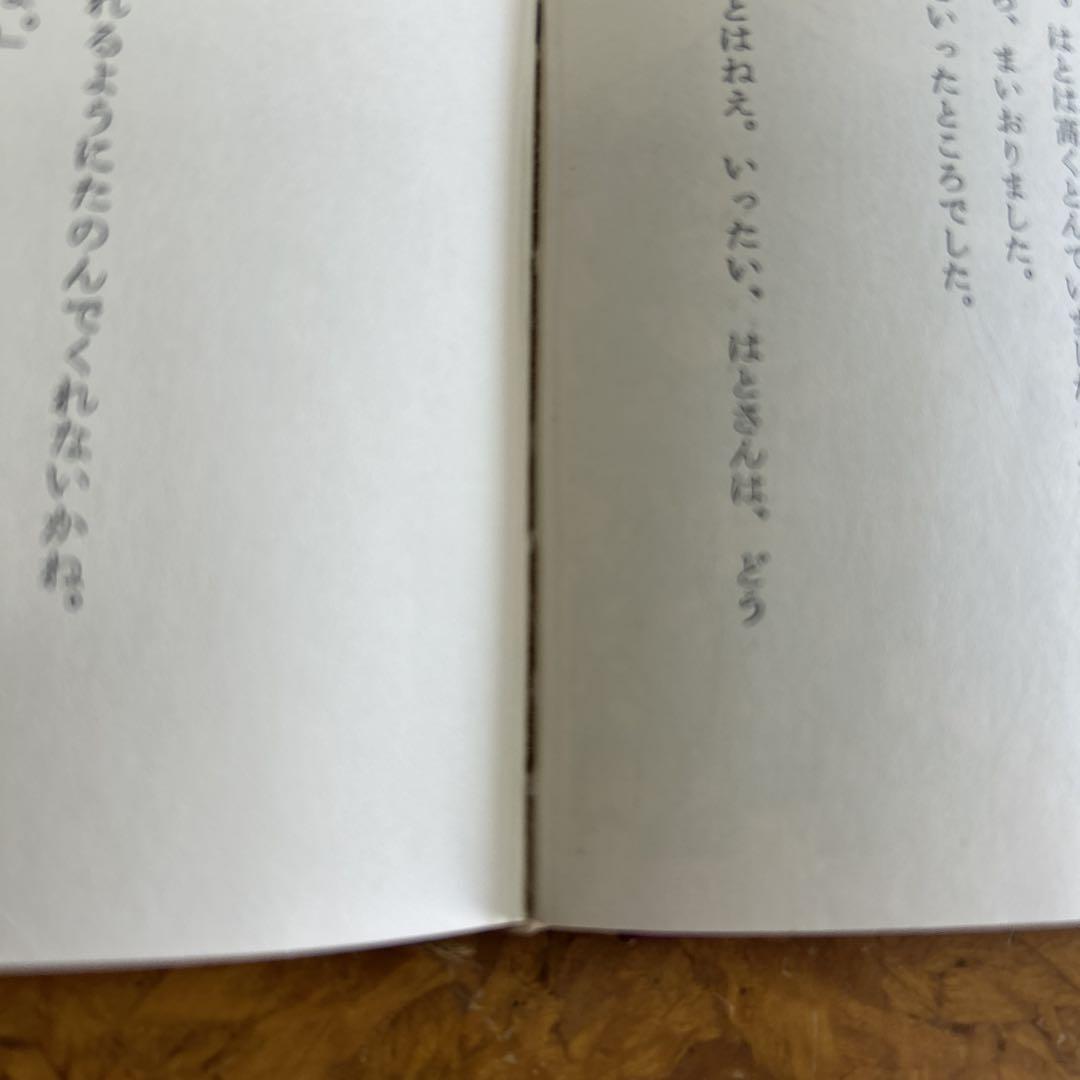 はとは高くとんでいました
、まいおりました。
いったところでした。
とはねえ。いったい、はとさんは、どう
れるようにたのんでくれないかね。
。」